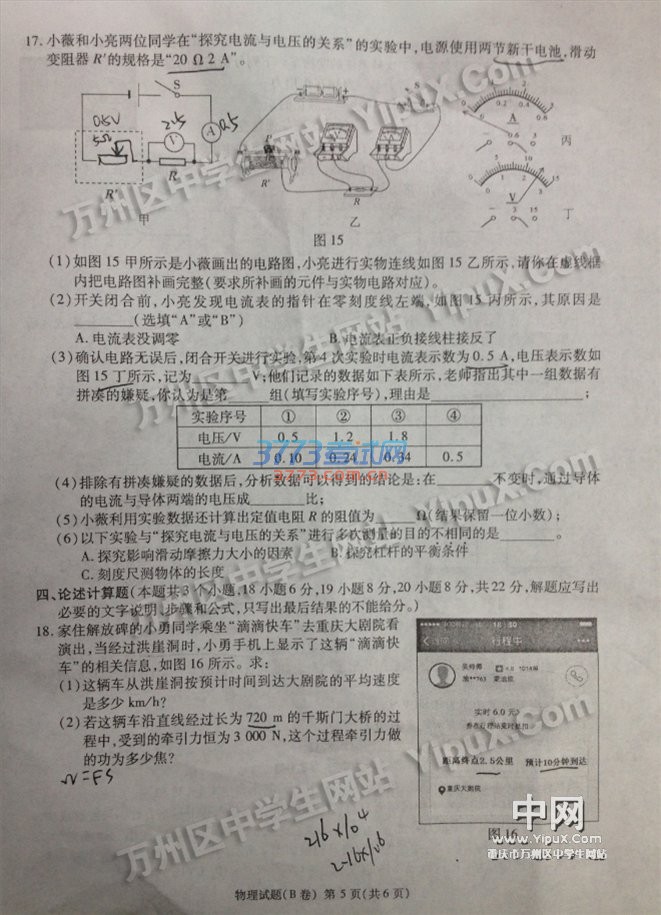 17. 小薇和小亮两位同学在“探究电流与电压的关系”的实验中，电源使用两节新干电池，滑动
变阻器 R′的规格是“20 Ω 2 A”。
S
0.5V
5Ω
2.5
V
A
0.5
R′
R
甲
R′
R
乙
0 0.2 0.4 0.6
A
- 0.6 3
丙
0 5 10 15
V
- 3 15
丁
图 15
(1)如图 15 甲所示是小薇画出的电路图，小亮进行实物连线如图 15 乙所示，请你在虚线框
内把电路图补画完整(要求所补画的元件与实物电路对应)。
(2)开关闭合前，小亮发现电流表的指针在零刻度线左端，如图 15 丙所示，其原因是
________(选填“A”或“B”)
A. 电流表没调零 B. 电流表正负接线柱接反了
(3)确认电路无误后，闭合开关进行实验，第 4 次实验时电流表示数为 0.5 A，电压表示数如
图 15 丁所示，记为________V；他们记录的数据如下表所示，老师指出其中一组数据有
拼凑的嫌疑，你认为是第____组(填写实验序号)，理由是________________；
实验序号 ① ② ③ ④
电压/V 0.5 1.2 1.8
电流/A 0.10 0.24 0.34 0.5
(4)排除有拼凑嫌疑的数据后，分析数据可以得到的结论是：在________不变时，通过导体
的电流与导体两端的电压成________比；
(5)小薇利用实验数据还计算出定值电阻 R 的阻值为______Ω(结果保留一位小数)；
(6)以下实验与“探究电流与电压的关系”进行多次测量的目的不相同的是________。
A. 探究影响滑动摩擦力大小的因素 B. 探究杠杆的平衡条件
C. 刻度尺测物体的长度
四、论述计算题(本题共 3 个小题，18 小题 6 分，19 小题 8 分，20 小题 8 分，共 22 分，解题应写出
必要的文字说明、步骤和公式，只写出最后结果的不能给分。)
18. 家住解放碑的小勇同学乘坐“滴滴快车”去重庆大剧院看
演出，当经过洪崖洞时，小勇手机上显示了这辆“滴滴快
车”的相关信息，如图 16 所示。求：
(1)这辆车从洪崖洞按预计时间到达大剧院的平均速度
是多少 km/h？
(2)若这辆车沿直线经过长为 720 m 的千斯门大桥的过
程中，受到的牵引力恒为 3 000 N，这个过程牵引力做
的功为多少焦？
W=FS
216×10^4
2.16×10^6
行程中
实时 6.0 元
距离终点2.5公里 预计10分钟到达
重庆大剧院
图 16
物理试题(B 卷) 第 5 页(共 6 页)
万州区中学生网站 YipuX.Com
3773考试网
3773.com.cn
中网
www.YipuX.Com
重庆市万州区中学生网站